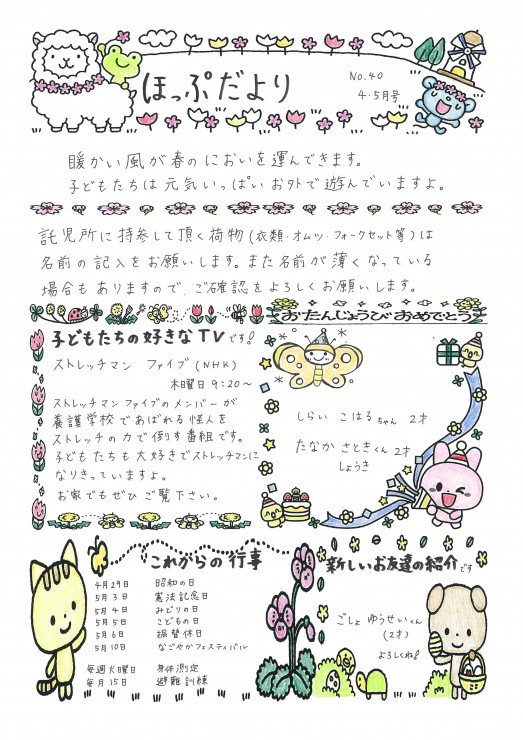 ほっぷだより
No.40
4・5月号
暖かい風が春のにおいを運んできます。
子どもたちは元気いっぱいお外で遊んでいますよ。
託児所に持参して頂く荷物(衣類・オムツ・フォークセット等)は
名前の記入をお願いします。また名前が薄くなっている
場合もありますので、ご確認をよろしくお願いします。
子どもたちの好きなTVです!
ストレッチマン ファイブ(NHK)
木曜日 9:20〜
ストレッチマン ファイブのメンバーが
養護学校であばれる怪人を
ストレッチの力で倒す番組です。
子どもたちも大好きでストレッチマンに
なりきっていますよ。
お家でもぜひご覧下さい。
おたんじょうびおめでとう
しらい こはるちゃん 2才
たなか さときくん 2才
しょうき
これからの行事
4月29日 昭和の日
5月3日 憲法記念日
5月4日 みどりの日
5月5日 こどもの日
5月6日 振替休日
5月10日 なごやかフェスティバル
毎週火曜日 身体測定
毎月15日 避難訓練
新しいお友達の紹介です
ごしょ ゆうせいくん
(2才)
よろしくね!